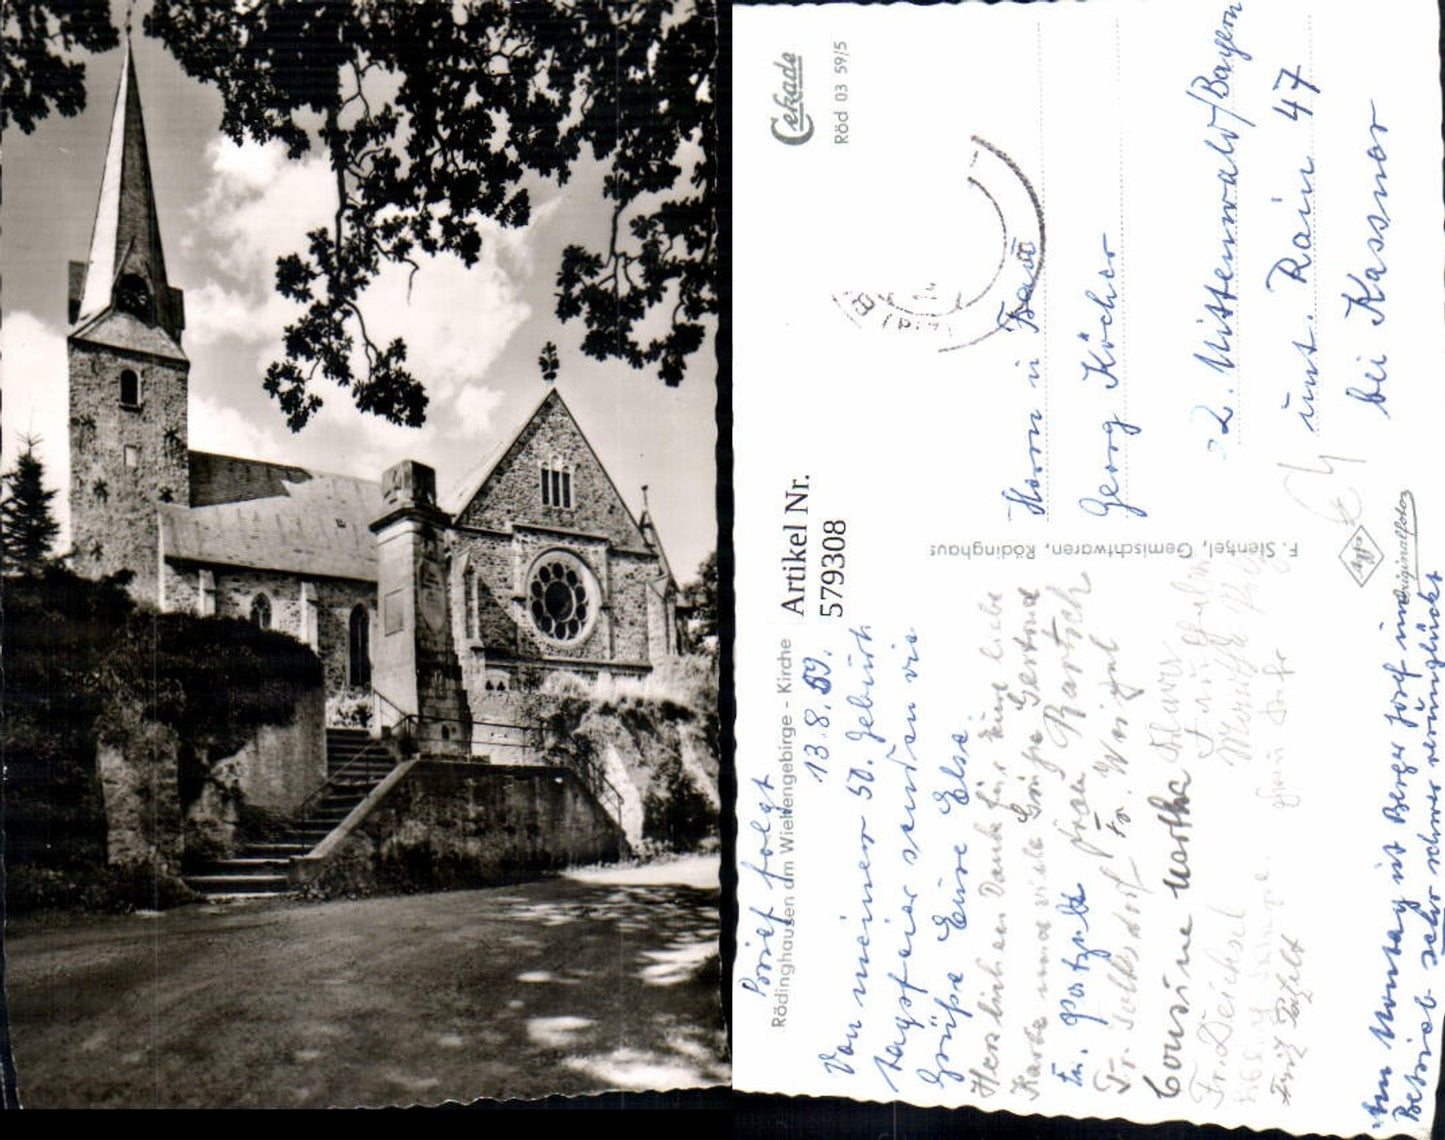 Brief folgt
Rödinghausen am Wiehengebirge - Kirche
13.8.59.
Von meiner 50. Geburts
tagsfeier senden wir
Grüße Eure Else
Herzlichen Dank für eure liebe
Karte und viele Grüße Gertrud
Fr. Patzelt Frau Bartsch
Fr. Weigel
Cousine Martha
Fr. Deichsel
Patzelt
Am Montag ist Berger Josef im
Betrieb sehr schwer verunglückt
Artikel Nr.
579308
F. Stenzel, Gemischtwaren, Rödinghaus
Agfa
Originalfoto
Cekade
Röd 03 59/5
Herrn u Frau
Georg Köcher
z. Mittenwald/Bayern
unt. Rain 47
bei Kassner